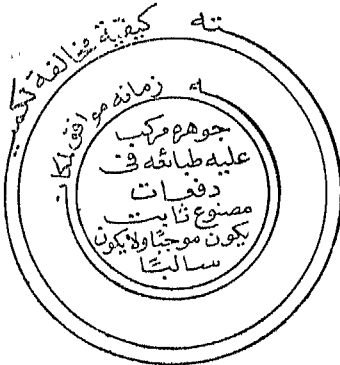 كيفيّة مخالفة لكميـته
زمانه موافق لمكانـه
جوهره مركب
عليه طبائعه في
دفعات
مصنوع ثابت
يكون موجبًا ولا يكون
سالبًا